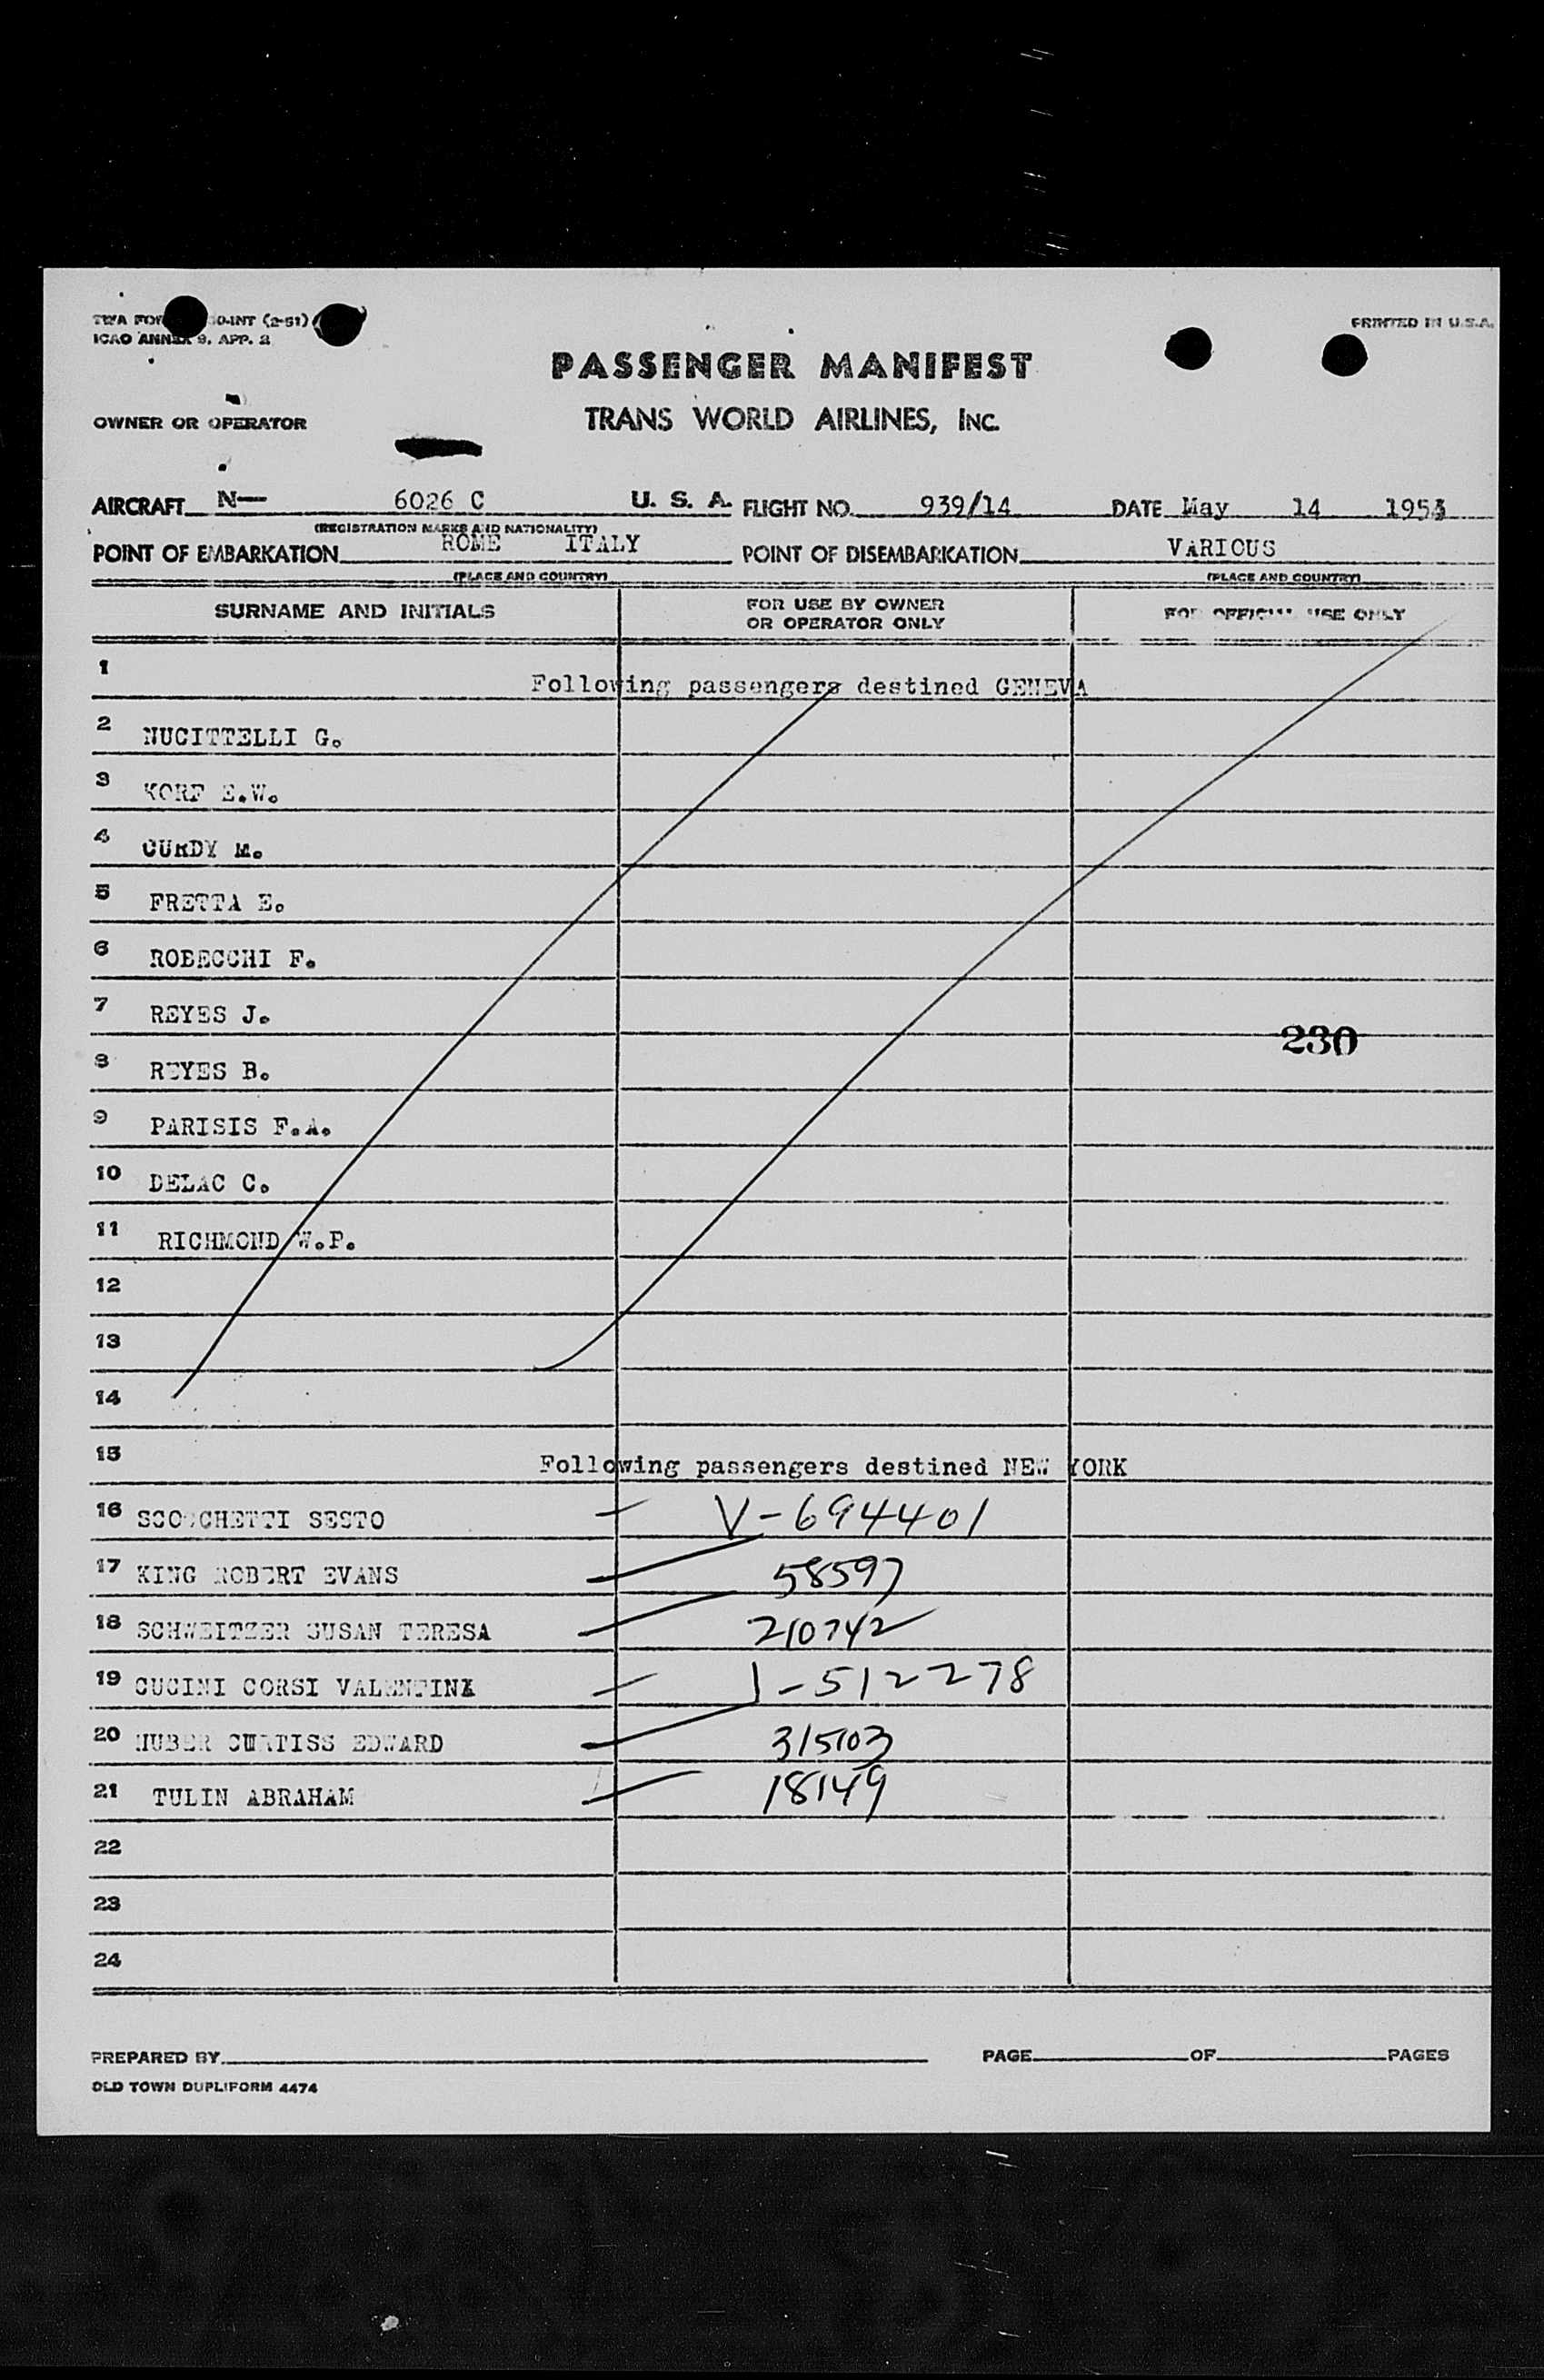 ICAO ANNEX 9, APP. 2
PRINTED IN U.S.A.
PASSENGER MANIFEST
OWNER OR OPERATOR
TRANS WORLD AIRLINES, INC.
AIRCRAFT N— 6026 C U. S. A. FLIGHT NO. 939/14 DATE May 14 1953
(REGISTRATION MARKS AND NATIONALITY)
POINT OF EMBARKATION ROME ITALY POINT OF DISEMBARKATION VARIOUS
(PLACE AND COUNTRY) (PLACE AND COUNTRY)
SURNAME AND INITIALS
FOR USE BY OWNER
OR OPERATOR ONLY
FOR OFFICIAL USE ONLY
1 Following passengers destined GENEVA
2 NUCITTELLI G.
3 KORF E.W.
4 CURDY M.
5 FRETTA E.
6 ROBECCHI F.
7 REYES J.
230
8 REYES B.
9 PARISIS F.A.
10 DELAC C.
11 RICHMOND W.P.
12
13
14
15 Following passengers destined NEW YORK
16 SESTO V-694401
17 KING ROBERT EVANS 58597
18 SCHWEITZER SUSAN TERESA 210742
19 CUCINI CORSI VALENTINA J-512278
20 HUBER CURTISS EDWARD 315103
21 TULIN ABRAHAM 18149
22
23
24
PREPARED BY PAGE OF PAGES
OLD TOWN DUPLIFORM 4474